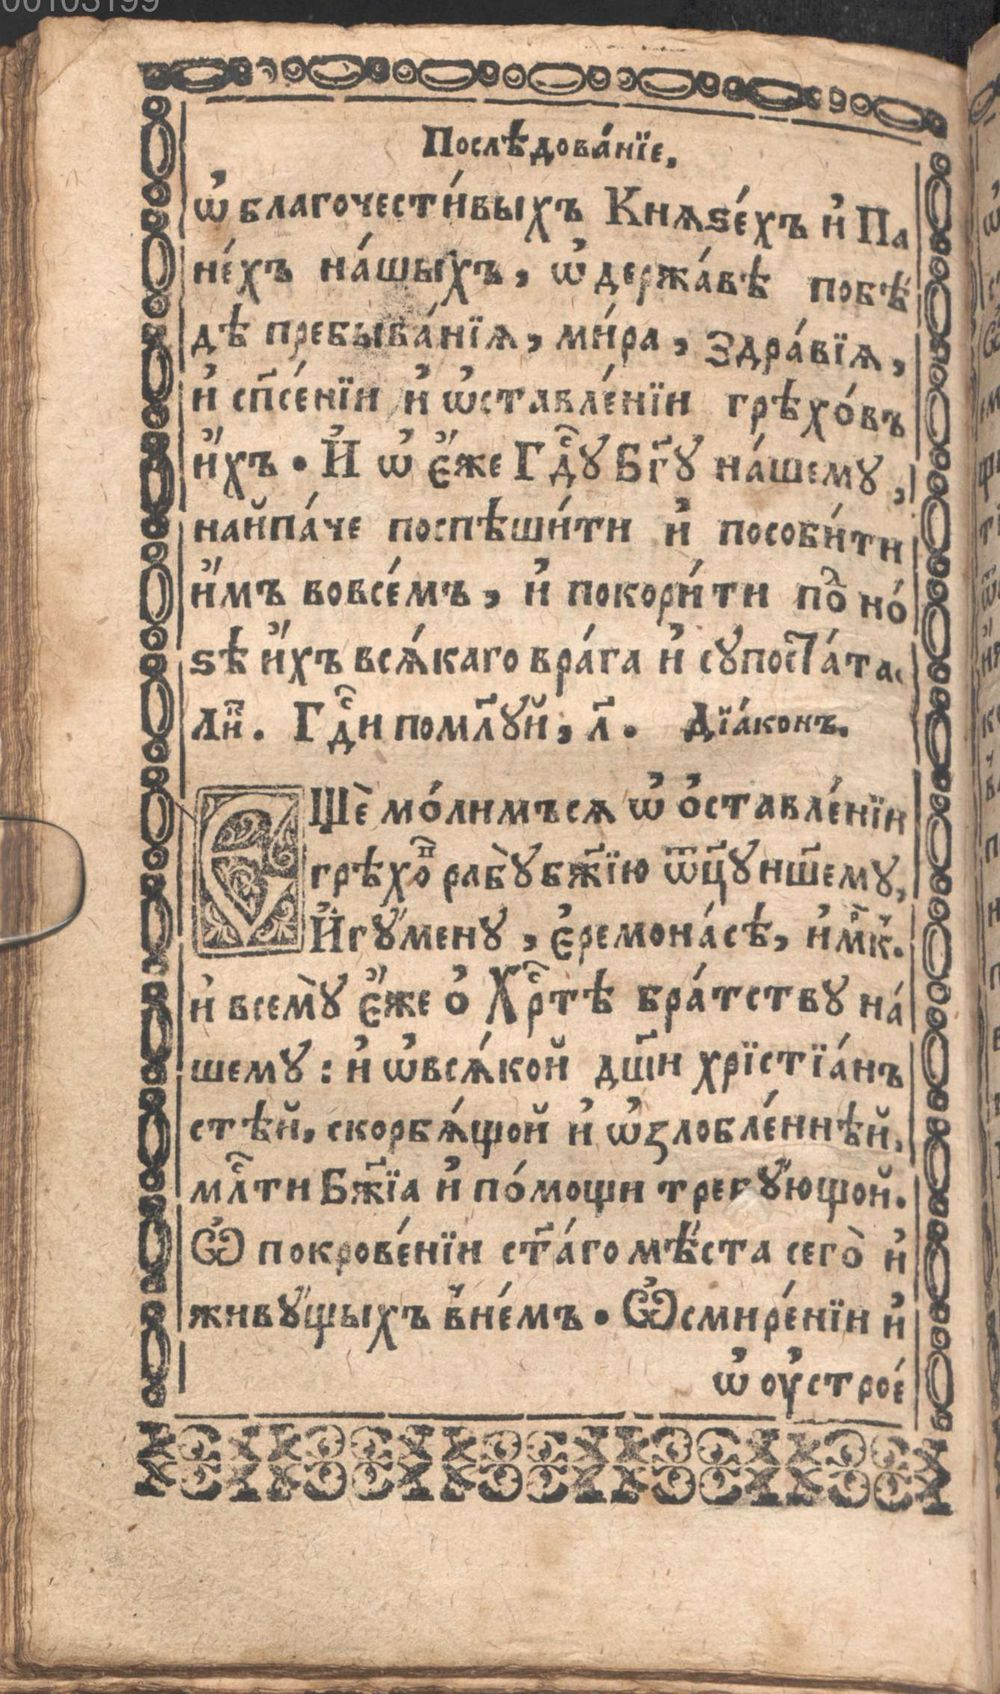 00103199
Послѣдова́нїе.
ѡ҆ благочести́выхъ Кнѧѕе́хъ и҆ Па
не́хъ на́шыхъ, ѡ҆ держа́вѣ побѣ́
дѣ пребыва́нїѧ, ми́ра, здра́вїѧ,
и҆ сп҃се́нїи и҆ ѡ҆ставле́нїи грѣхо́въ
и҆́хъ. И҆ ѡ҆ є҆́же Гдⷭ҇ꙋ Бг҃ꙋ на́шемꙋ,
найпа́че поспѣши́ти и҆ пособи́ти
и҆́мъ вовсе́мъ, и҆ покори́ти по́ⷣ но́
ѕѣ и҆́хъ всѧ́каго вра́га и҆ сꙋпоста́та.
Ли́ⷦ. Гдⷭ҇и поми́лꙋй, л҃. Дїа́конъ.
Є҆Щѐ мо́лимъсѧ ѡ҆ ѻ҆ставле́нїи
грѣхо́ⷡ рабꙋ̀ бж҃їю ѿц҃ꙋ нш҃емꙋ,
И҆гꙋ́менꙋ, є҆ремона́сѣ, и҆мⷬ҇к.
и҆ всемꙋ̀ є҆́же ѻ҆ Хрⷭ҇тѣ бра́тствꙋ на́
шемꙋ: и҆ ѡ҆всѧ́кой дш҃и хрїстїа́нъ
стѣй, скорбѧ́щой и҆ ѡ҆ѕлобле́ннѣй,
млⷭ҇ти Бж҃їа и҆ по́мощи требꙋ́ющой.
Ѽ покрове́нїи ст҃а́го мѣ́ста сегѡ̀ и҆
живꙋ́щыхъ в̾не́мъ. Ѽсмире́нїи и҆
ѡ҆ оу҆строе́